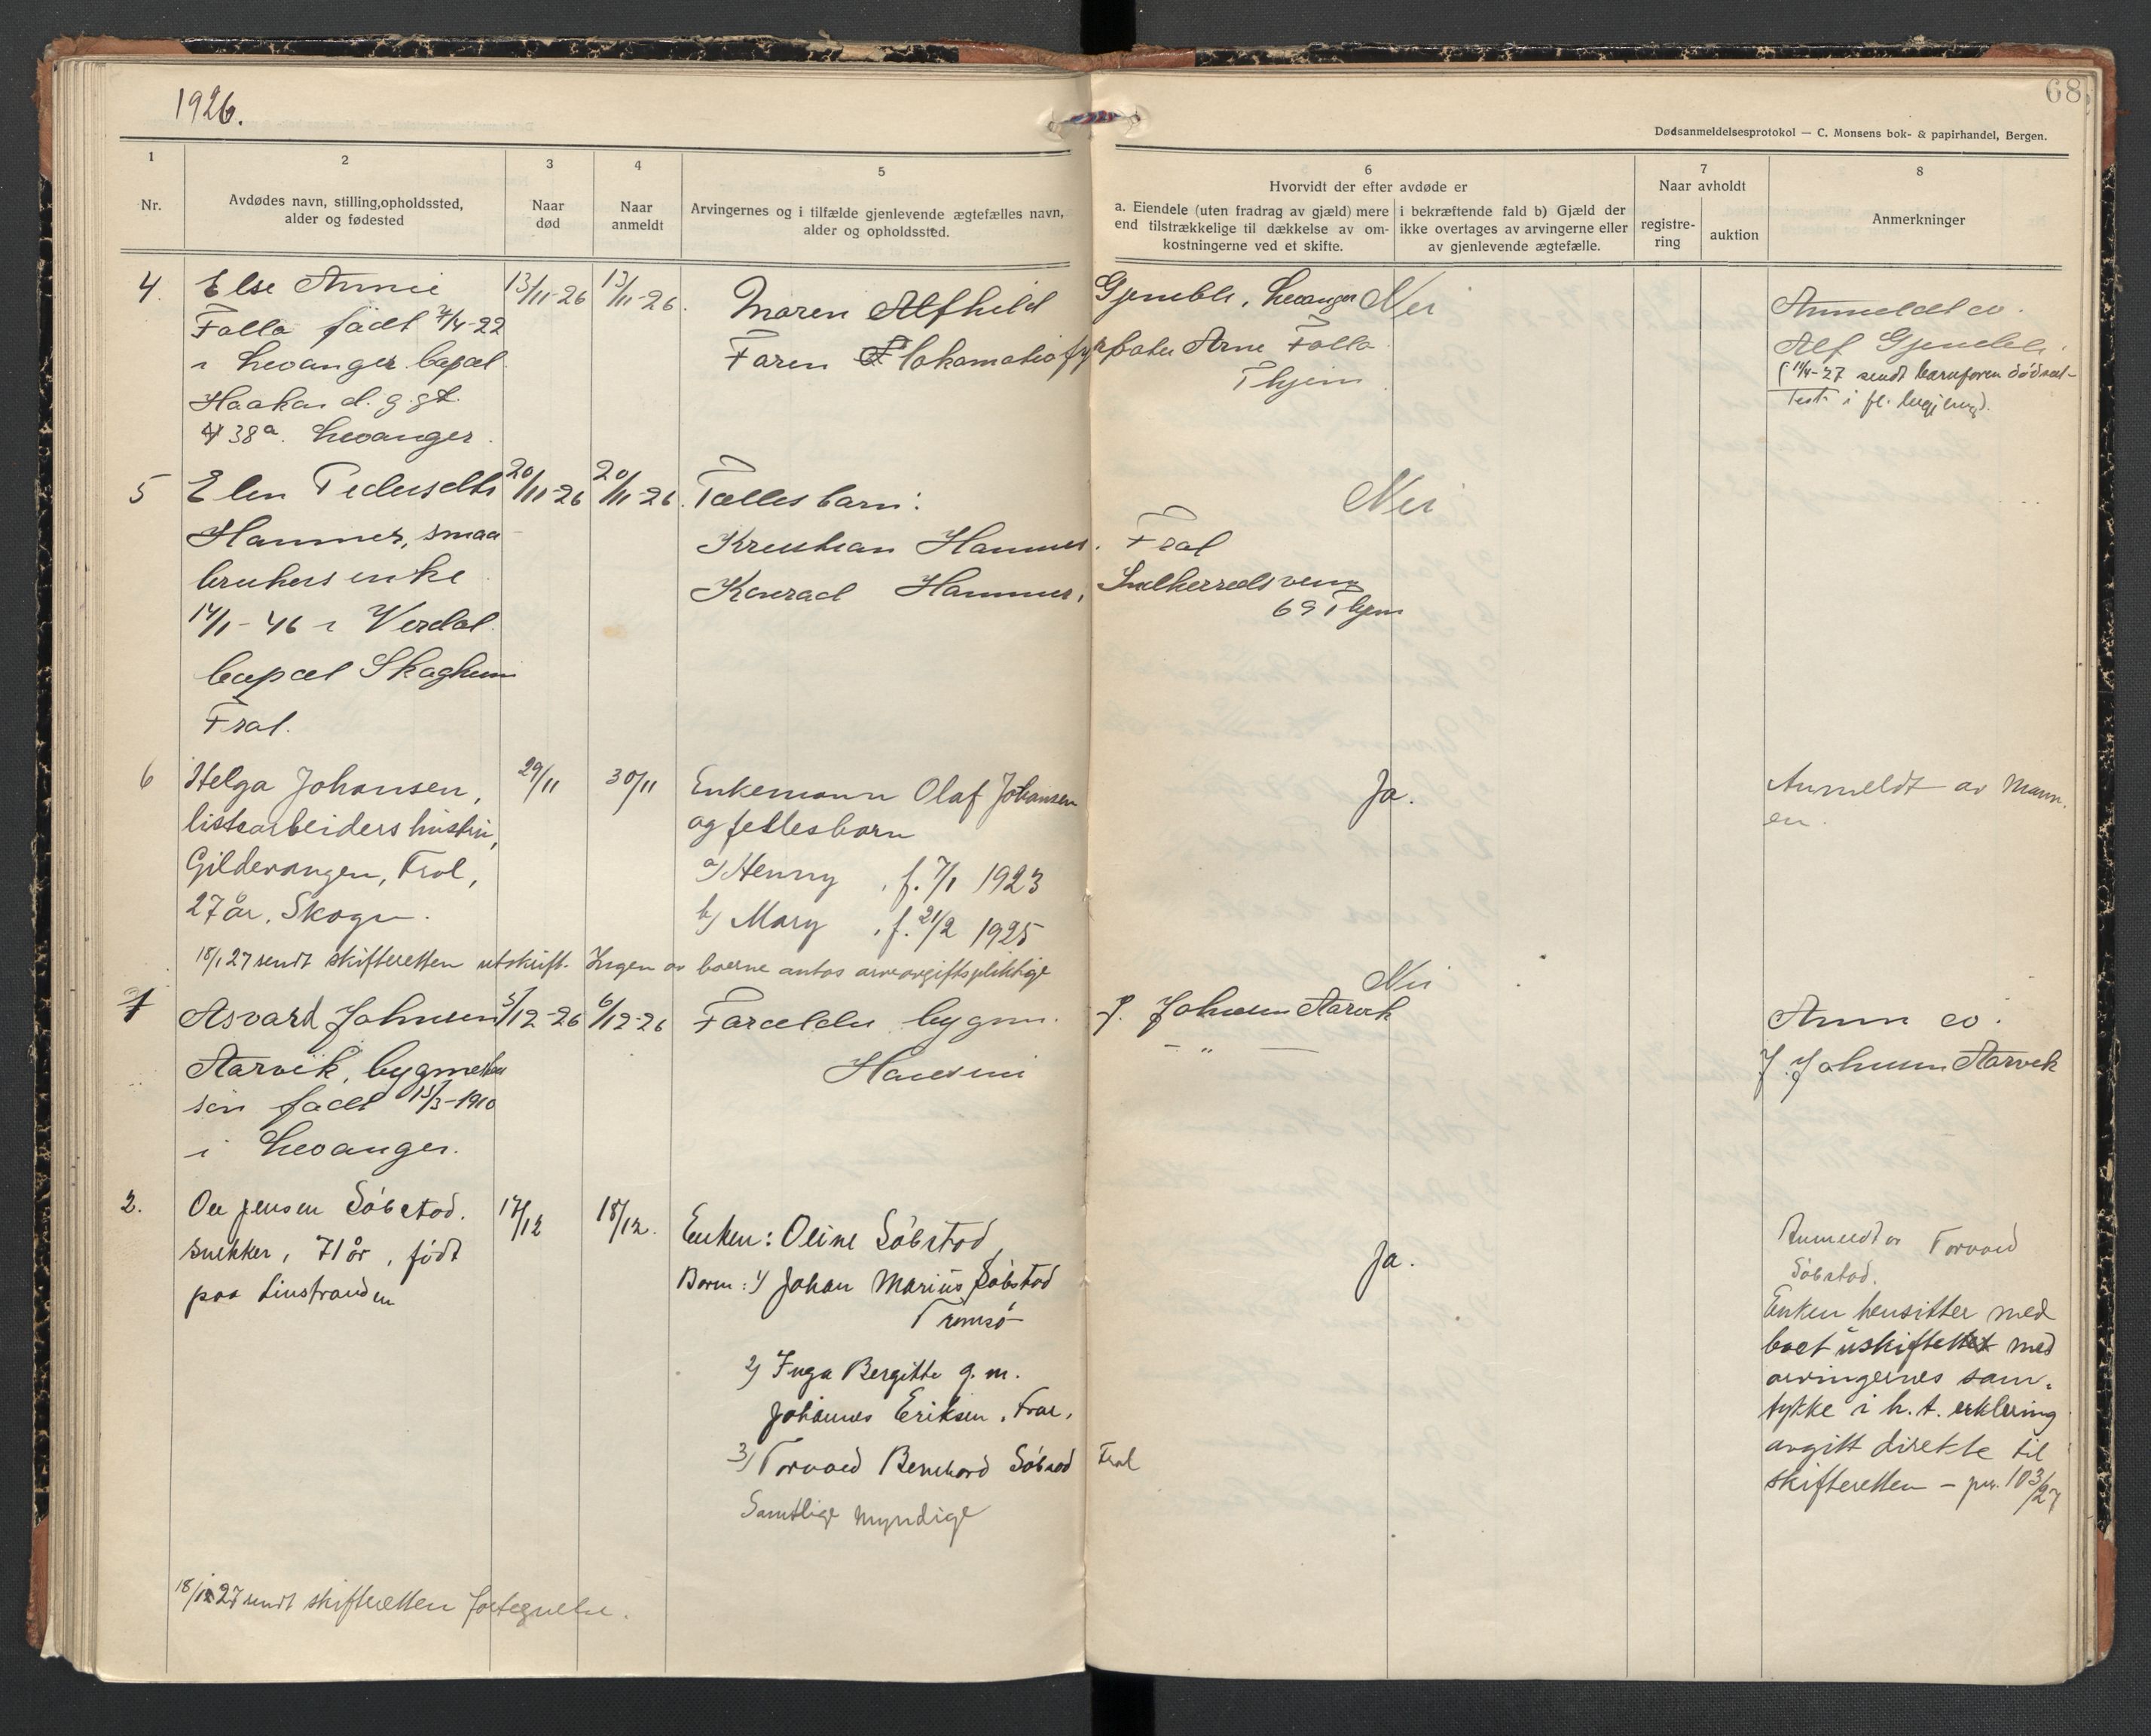 1926.
68
Dødsanmeldelsesprotokol — C. Monsens bok- & papirhandel, Bergen.
1
2
3
4
5
6
7
8
Nr.
Avdødes navn, stilling, opholdssted,
alder og fødested
Naar
død
Naar
anmeldt
Arvingernes og i tilfælde gjenlevende ægtefælles navn,
alder og opholdssted.
Hvorvidt der efter avdøde er
a. Eiendele (uten fradrag av gjæld) mere
end tilstrækkelige til dækkelse av om-
kostningerne ved et skifte.
i bekræftende fald b) Gjæld der
ikke overtages av arvingerne eller
av gjenlevende ægtefælle.
Naar avholdt
registre-
ring
auktion
Anmerkninger
4.
Else Annie
Falla født 7/4-22
i Levanger bopæl
Haakon d. g. gt.
38a. Levanger.
13/11-26
13/11-26.
Moren Alfhild Gjemble, Levanger
Faren lokomotivfyrbøter Arne Falla
Thjem.
Nei
Anmeldt av.
Alf Gjemble.
(11/4-27 sendt barnfaren dødsat-
test i fl. begjering).
5
Elen Pedersdtr
Hammer, smaa-
brukers enke
17/1-46 i Verdal.
bopæl Skogheim
Frol.
20/11-26
20/11-26.
Fælles barn:
Kristian Hammer. Frol
Konrad Hammer, Indherredsveng
69 Thjem
Nei
6
Helga Johansen,
listearbeiders hustru,
Gildevangen, Frol,
27 år, Skogn.
29/11
30/11
Enkemann Olaf Johansen
og fellesbarn
a) Henny , f. 7/1 1923
b) Mary , f. 21/2 1925
Ja.
Anmeldt av Mann-
en.
18/1 27 sendt skifteretten utskrift. Ingen av boerne antas arveavgiftspliktige
7
Asvard Johnsen
Aarvik, bygmesters
søn født 15/3-1910
i Levanger.
5/12-26
6/12-26
Forældre bygm. J. Johnsen Aarvik
Hansine — " —
Nei
Anm av.
J. Johnsen Aarvik
2.
Ole Jensen Søbstad.
snekker, 71 år, født
paa Leinstranden
17/12
18/12.
Enken: Oline Søbstad,
Barn: 1) Johan Marius Søbstad
Tromsø
2) Inga Bergitte g. m.
Johannes Eriksen, Frol,
3) Torvald Bernhard Søbstad Frol
Samtlige myndige
Ja.
Anmeldt av Torvald
Søbstad.
Enken hensitter med
boet uskiftet med
arvingernes sam-
tykke i h. t. erklæring
avgitt direkte til
skifteretten – jnr. 103/27
18/1 27 sendt skifteretten fortegnelse.